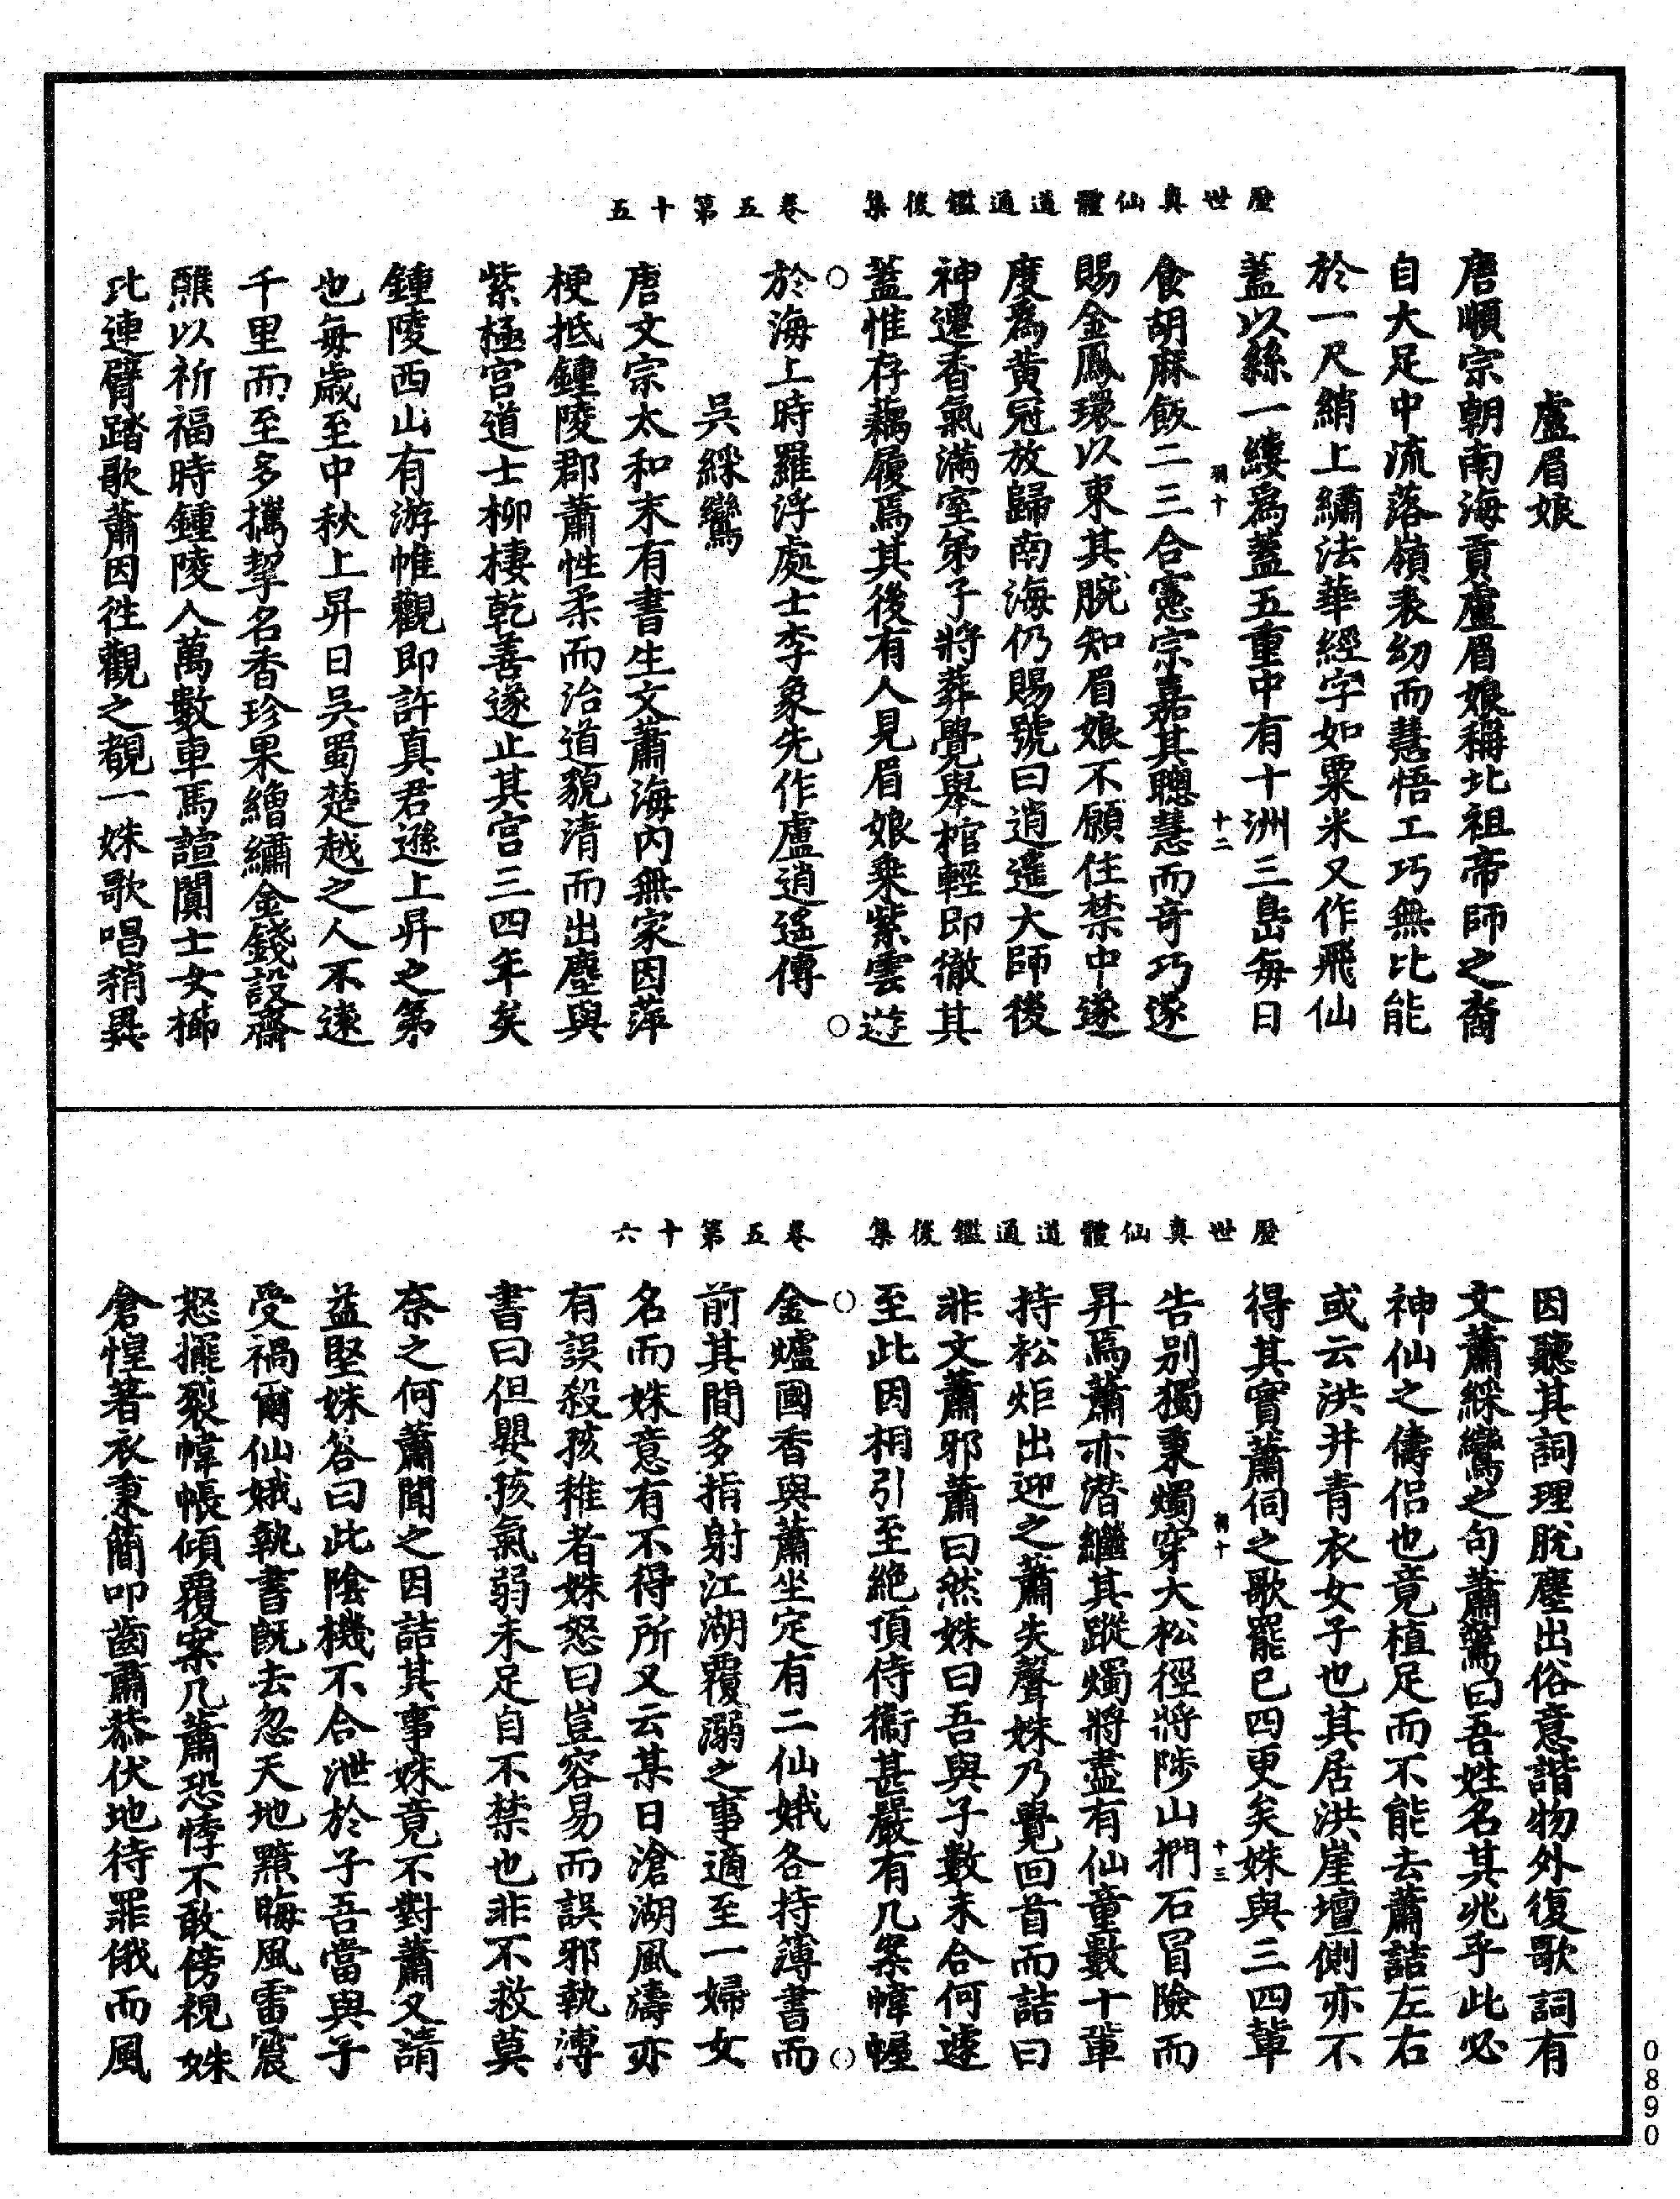 歷世真仙體道通鑑後集　卷五第十五
盧眉娘
唐順宗朝南海貢盧眉娘稱北祖帝師之裔
自大足中流落嶺表幼而慧悟工巧無比能
於一尺綃上繡法華經字如粟米又作飛仙
蓋以絲一縷為蓋五重中有十洲三島每日
羽十　十二
食胡麻飯二三合憲宗嘉其聰慧而奇巧遂
賜金鳳環以束其腕知眉娘不願住禁中遂
度為黃冠放歸南海仍賜號曰逍遙大師後
神遷香氣滿室弟子將葬覺舉棺輕即徹其
蓋惟存藕屨焉其後有人見眉娘乘紫雲遊
於海上時羅浮處士李象先作盧逍遙傳
吳綵鸞
唐文宗太和末有書生文蕭海內無家因萍
梗抵鍾陵郡蕭性柔而治道貌清而出塵與
紫極宮道士柳棲乾善遂止其宮三四年矣
鍾陵西山有游帷觀即許真君遜上昇之第
也每歲至中秋上昇日吳蜀楚越之人不遠
千里而至多攜挈名香珍果繪繡金錢設齋
醮以祈福時鍾陵人萬數車馬諠闐士女櫛
比連臂踏歌蕭因往觀之覩一姝歌唱稍異
歷世真仙體道通鑑後集　卷五第十六
因聽其詞理脫塵出俗意諧物外復歌詞有
文蕭綵鸞之句蕭驚曰吾姓名其兆乎此必
神仙之儔侶也竟植足而不能去蕭詰左右
或云洪井青衣女子也其居洪崖壇側亦不
得其實蕭伺之歌罷已四更矣姝與三四輩
羽十　十三
告別獨秉燭穿大松徑將陟山捫石冒險而
昇焉蕭亦潛繼其蹤燭將盡有仙童數十輩
持松炬出迎之蕭失聲姝乃覺回首而詰曰
非文蕭邪蕭曰然姝曰吾與子數未合何遽
至此因相引至絕頂侍衛甚嚴有几案幃幄
金爐國香與蕭坐定有二仙娥各持簿書而
前其間多指射江湖覆溺之事適至一婦女
名而姝意有不得所又云某日滄湖風濤亦
有誤殺孩稚者姝怒曰豈容易而誤邪執溥
書曰但嬰孩氣弱未足自不禁也非不救莫
奈之何蕭聞之因詰其事姝竟不對蕭又請
益堅姝答曰此陰機不合泄於子吾當與子
受禍爾仙娥執書既去忽天地黯晦風雷震
怒擺裂幃帳傾覆案几蕭恐悸不敢傍視姝
倉惶著衣秉簡叩齒肅恭伏地待罪俄而風
0890